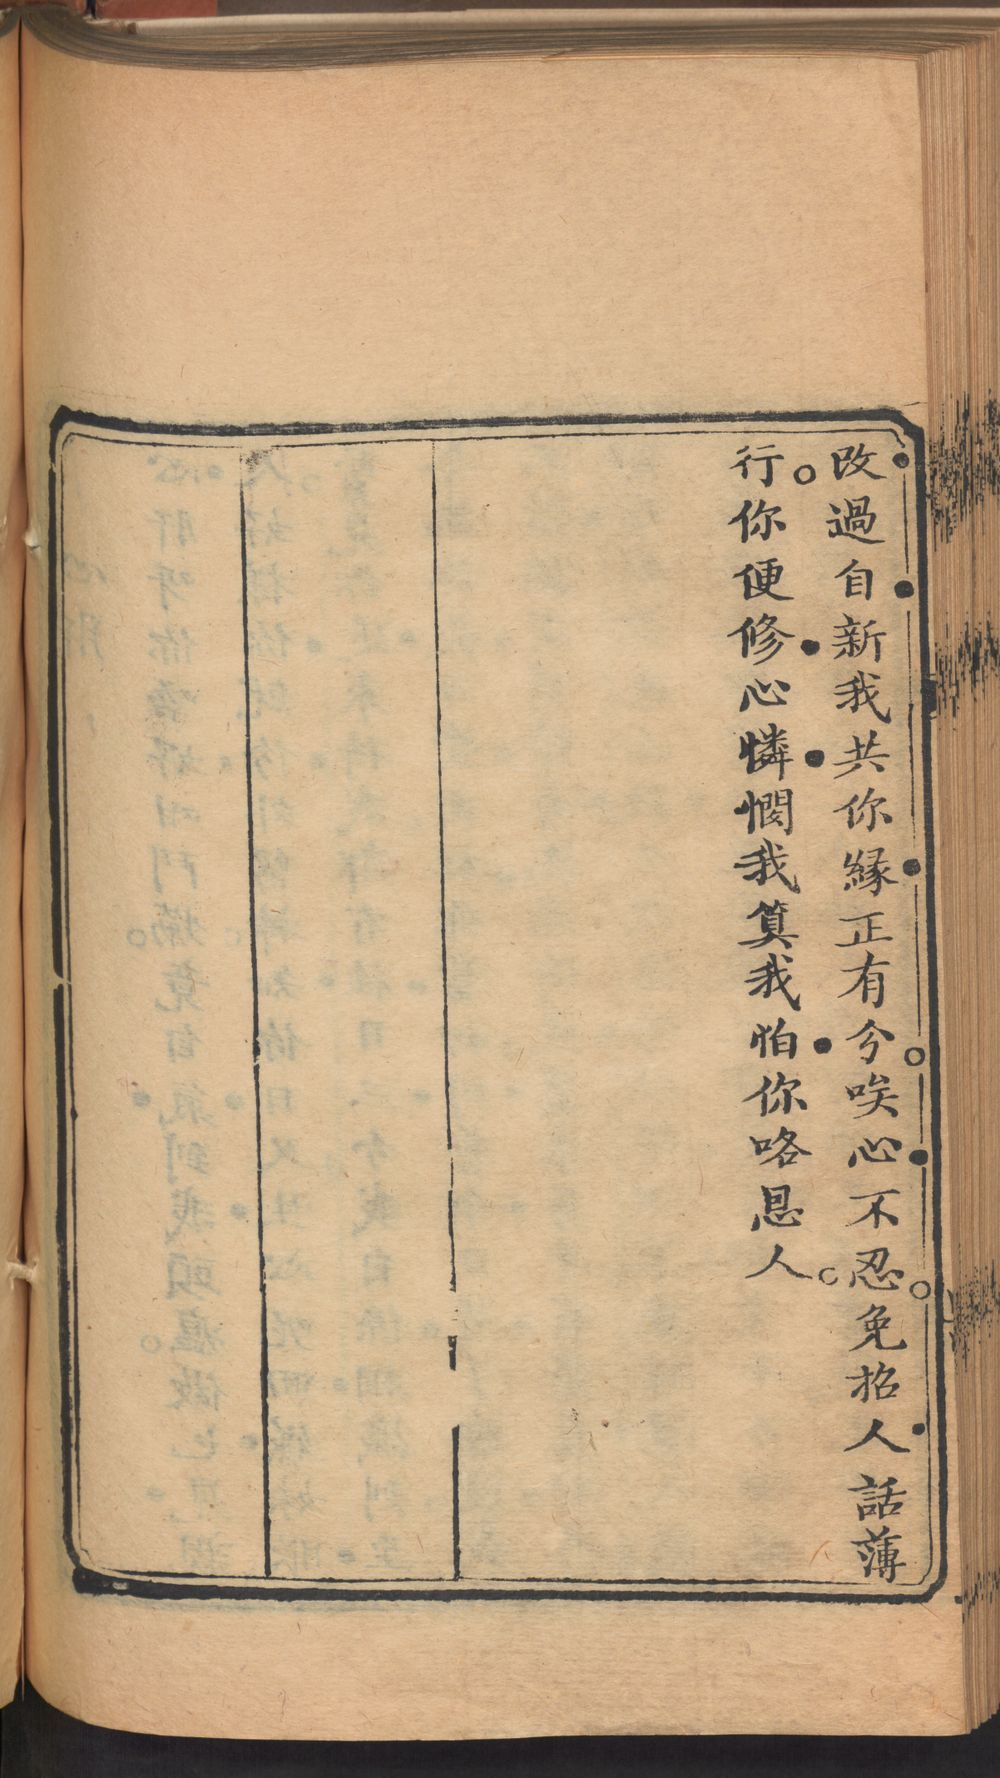 改過自新我共你緣正有分唉心不忍免招人話薄
行你便修心憐憫我算我怕你咯恩人